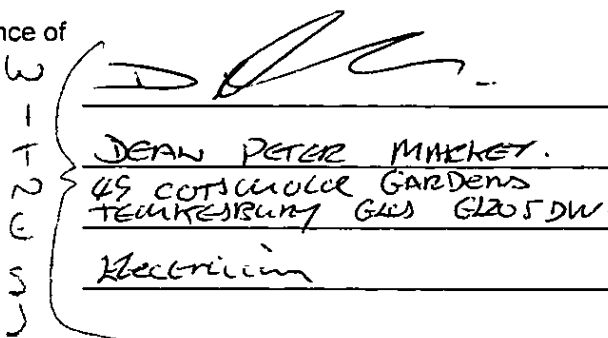 nce of
WITNESS
DEAN PETER
45 COTSWOLD GARDENS
TEWKESBURY GLOS GL20 5DW
Electrician